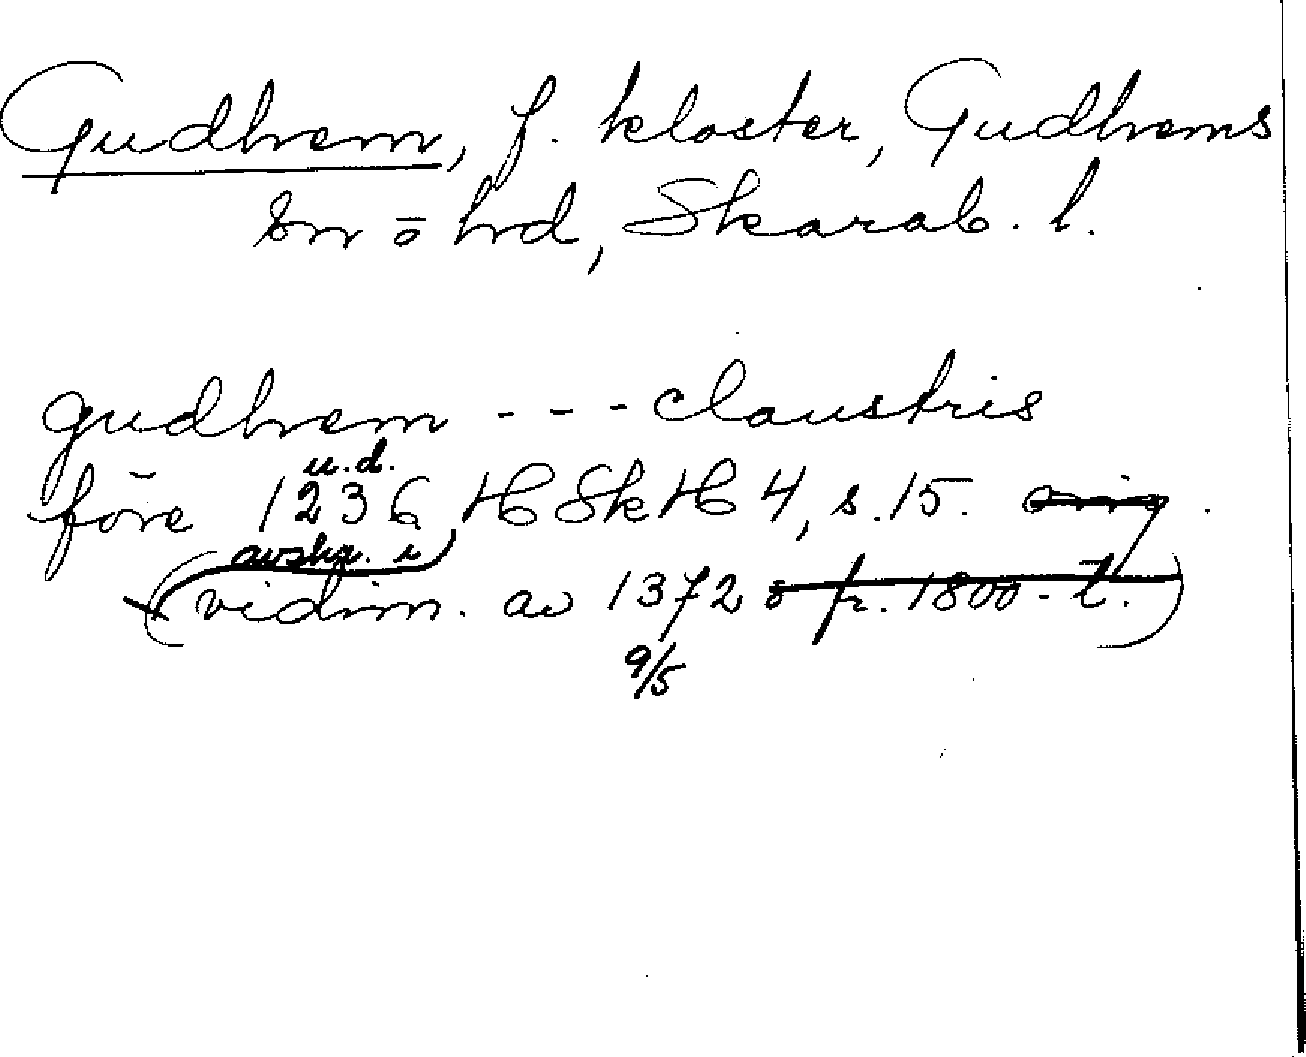 Gudhem, f. kloster, Gudhems
sn o hd, Skarab. l.
gudhem --- claustris
u.d.
före 1236 HSkH 4, s. 15.
avskr. i
(vidim. av 1372 o fr. 1800-t.)
9/5